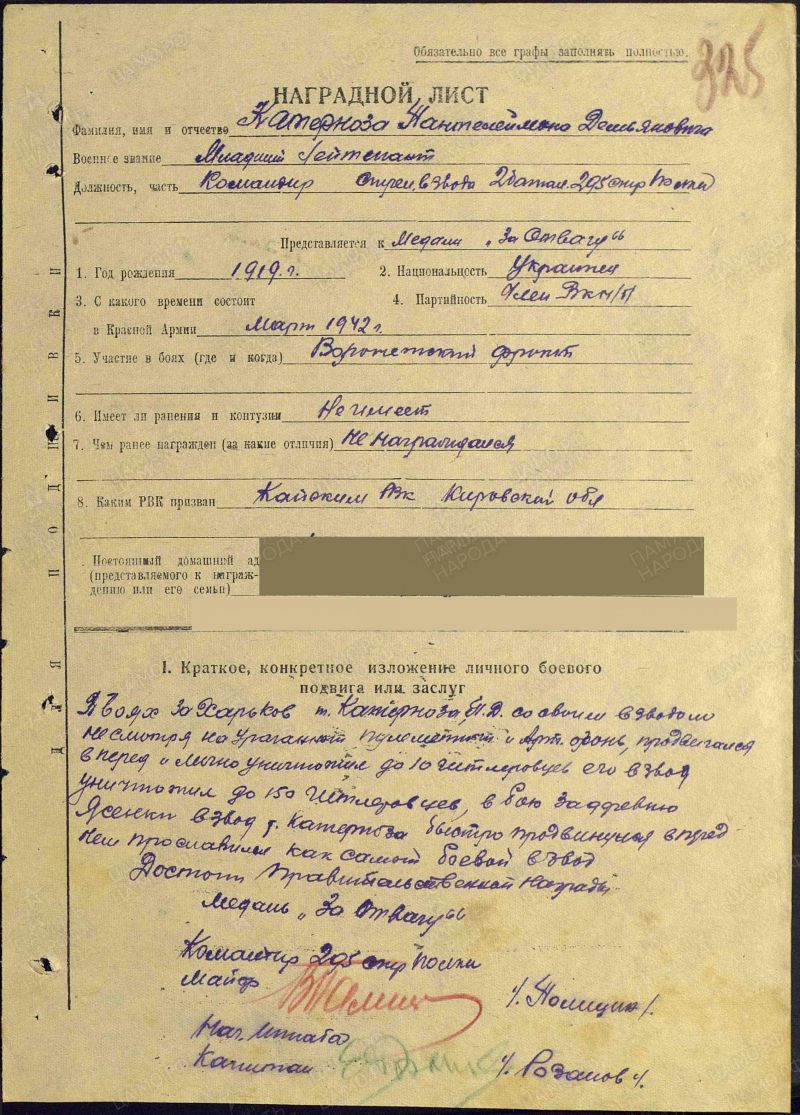 Обязательно все графы заполнять полностью.
325
НАГРАДНОЙ ЛИСТ
Фамилия, имя и отчество Катерноза Пантелеймона Демьяновича
Военное звание Младший Лейтенант
Должность, часть Командир стрел. взвода 2 батал. 295 стр полка
Представляется к Медали „За Отвагу“
1. Год рождения 1919 г. 2. Национальность Украинец
3. С какого времени состоит 4. Партийность Член ВКП/б/
в Красной Армии Март 1942 г.
5. Участие в боях (где и когда) Воронежский фронт
6. Имеет ли ранения и контузии Не имеет
7. Чем ранее награжден (за какие отличия) Не награждался
8. Каким РВК призван Кайским РВк Кировской обл
Постоянный домашний ад
(представляемого к награж-
дению или его семьи)
ДЛЯ ПОДШИВКИ
I. Краткое, конкретное изложение личного боевого
подвига или заслуг
В боях за Харьков т. Катерноза П.Д. со своим взводом
несмотря на ураганный пулеметный и Арт. огонь, продвигался
вперед и лично уничтожил до 10 гитлеровцев его взвод
уничтожил до 150 гитлеровцев, в бою за деревню
Ясенки взвод т. Катерноза быстро продвинулся вперед
чем прославился как самый боевой взвод
Достоин правительственной награды
медаль „За Отвагу“
Командир 295 стр полка
Майор /. /.
Нач. штаба
Капитан /. Розанов /.